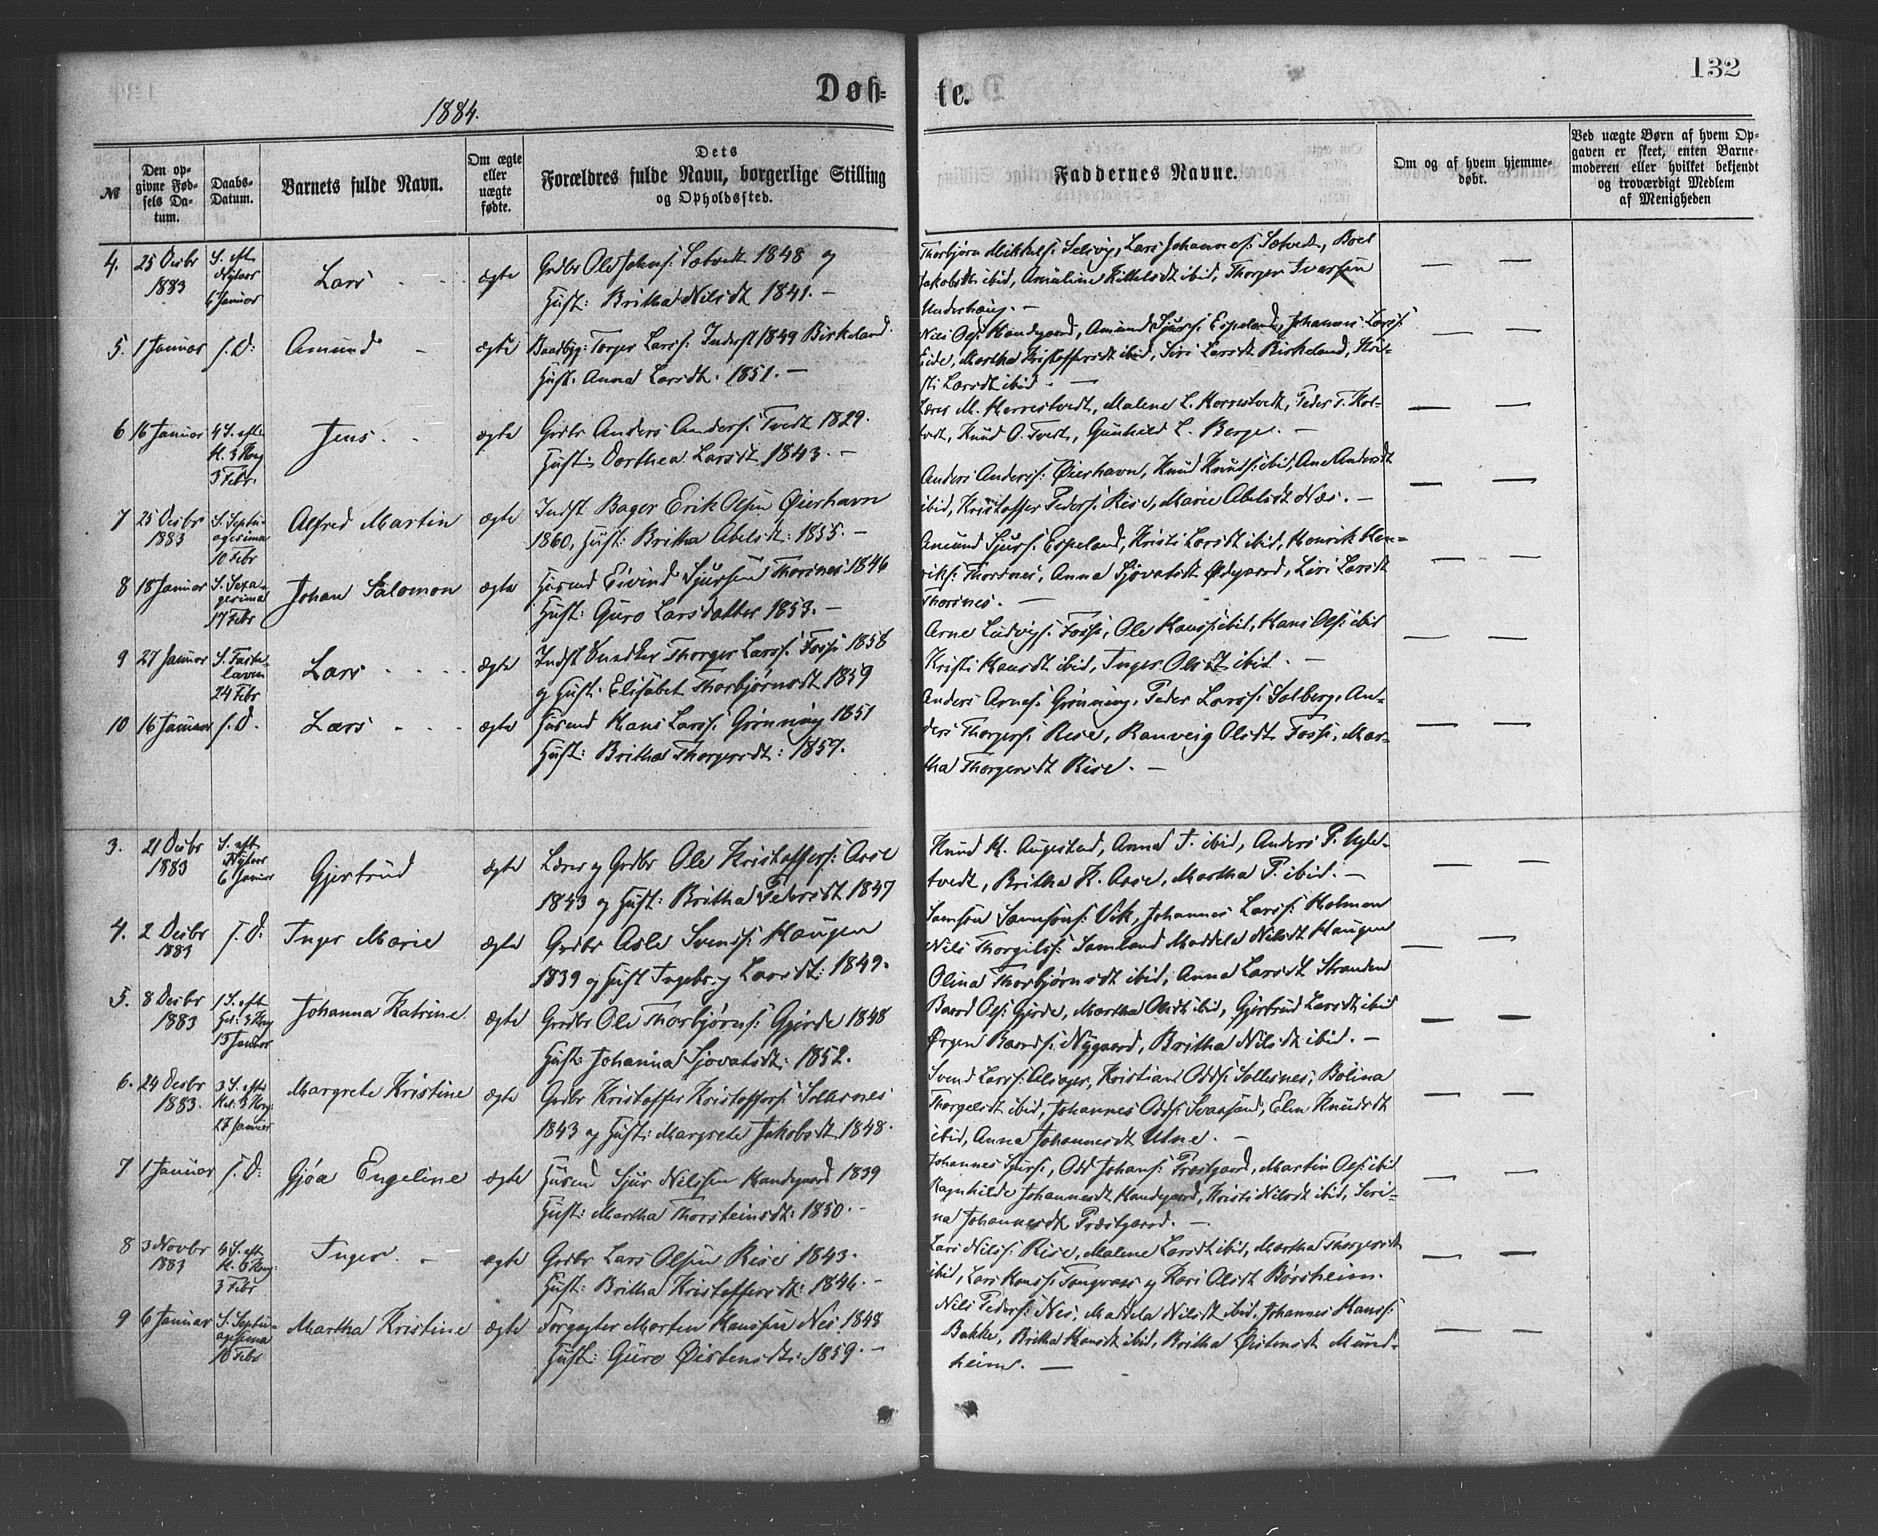 Døb-
te.
132
1884.
№
Den op-
givne Fød-
sels Da-
tum.
Daabs-
Datum.
Barnets fulde Navn.
Om ægte
eller
uægte
fødte.
Dets
Forældres fulde Navn, borgerlige Stilling
og Opholdssted.
Faddernes Navne.
Om og af hvem hjemme-
døbt.
Ved uægte Børn af hvem Op-
gaven er skeet, enten Barne-
moderen eller hvilket bekjendt
og troværdigt Medlem
af Menigheden
4. 25 Decbr
1883
S. eft.
Nytaar
6 Januar
Lars
ægte
Grdbr Ole Johns: Sætvedt 1848 og
Hust: Britha Nilsdt 1841. —
Thorbjørn Mikkels: Selsvig, Lars Johannes: Sætvedt, Boel
Jakobsdt ibid, Amaline Killelsdt ibid, Thorger Ivarsen
Underhaug. —
5. 1 Januar
s. D:
Amund
ægte
Baadbyg: Torger Larss: Inderst 1849 Birkeland.
Hust. Anna Larsdt. 1851. —
Nils Ols: Handegaard, Amund Sjurs: Espeland, Johannes Larss:
Eide, Martha Kristoffersdt ibid, Siri Larsdt Birkeland, Kri-
sti Larsdt ibid. —
6 16 Januar
4 S. efter
H. 3 Kong
3 Febr.
Jens
ægte
Grdbr Anders Anders: Tvedt 1829.
Hust: Dorthea Larsdt 1843. —
Lærer M. Herrestvedt, Malene L. Herrestvedt, Peder T. Hol-
tvedt, Knud O. Tvedt, Gunhild L. Berge. —
7 25 Decbr
1883
S. Septu-
agesima
10 Febr
Alfred Martin
ægte
Indst Bager Erik Olsen Øierhavn
1860, Hust: Britha Abelsdt: 1855. —
Anders Anderss: Øierhavn, Knud Knuds: ibid, Ane Andersdt
ibid, Kristoffer Peders: Rise, Marie Abelsdt Næs. —
8 18 Januar
S. Sexa-
gesima
17 Febr
Johan Salomon
ægte
Husmd Eivind Sjursen Thorsnes 1846
Hust: Guro Larsdatter 1853. —
Amund Sjurs: Espeland, Kristi Larsdt ibid, Henrik Hen-
riks: Thorsnes, Anna Sjovatsdt Ødegaard, Siri Larsdt
Thorsnes. —
9 27 Januar
S. Faste-
lavn
24 Febr
Lars
ægte
Indst Snedker Thorger Larss: Fosse 1858
og Hust: Elisabet Thorbjørnsdt 1859
Arne Ludvigs: Fosse, Ole Hanss: ibid, Hans Ols: ibid
Kristi Hansdt ibid, Inger Olsdt ibid. —
10 16 Januar
s. D.
Lars
ægte
Husmd Hans Larss: Grønning 1851
Hust: Britha Thorgersdt: 1857.
Anders Arnes: Grønning, Peder Larss: Solberg, An-
ders Thorgers: Rise, Ranveig Olsdt Fosse, Mar-
tha Thorgersdt Rise. —
3. 21 Decbr
1883
S. eft.
Nytaar
6 Januar
Gjertrud
ægte
Lærer og Grdbr Ole Kristoffers: Aase
1843 og Hust: Britha Pedersdt 1847
Knud K. Augestad, Anna T. ibid, Anders P.
tvedt, Britha K. Aase, Martha P. ibid. —
4. 2 Decbr
1883
s. D:
Inger Marie
ægte
Grdbr Asle Svenss: Haugen
1839 og Hust Ingeborg Larsdt: 1849.
Samson Samsons: Vik, Johannes Larss: Holman
Nils Thorgilss: Samland Maddela Nilsdt Haugen
Olina Thorbjørnsdt ibid, Anna Larsdt Stranden
5. 8 Decbr
1883
1 S. eft
Hel: 3 Kong
13 Januar
Johanna Katrine
ægte
Grdbr Ole Thorbjørns: Gjerde 1848
Hust: Johanna Sjovatsdt: 1852.
Baard Ols: Gjerde, Martha Olsdt ibid, Gjertrud Larsdt ibid
Ørgen Baards: Nygaard, Britha Nilsdt ibid. —
6. 24 Decbr
1883.
3 S. eft
Hel: 3 Kong:
27 Januar
Margrete Kristine
ægte
Grdbr Kristoffer Kristoffers: Solesnes
1843 og Hust: Margrete Jakobsdt 1848.
Svend Larss: Alsager, Kristian Odds: Sollesnes, Bolina
Thorgilsdt ibid, Johannes Odds: Svaasand, Elen Knudsdt
ibid, Anna Johannesdt Utne. —
7 1 Januar
s. D:
Gjøa Engeline
ægte
Husmd Sjur Nilssen Handegaard 1839
Hust: Martha Thorsteinsdt: 1850. —
Johannes Sjurs:, Odd Johans: Præstgaard, Martin Ols: ibid
Ragnhilde Johannesdt Handegaard, Kristi Nilsdt ibid, Seri-
na Johannesdt Præstgaard. —
8 3 Novbr
1883
4 S. eft
H. 3 Kong:
3 Febr
Inger
ægte
Grdbr Lars Olsen Rise 1843.
Hust: Britha Kristoffersdt: 1846. —
Lars Nilss: Rise, Malene Larsdt ibid, Martha Thorgersdt
ibid, Lars Hanss: Tangeraas og Kari Olsdt Børsheim.
9 6 Januar
S. Septu-
agesima
10 Febr
Martha Kristine
ægte
Forpagter Morten Hanssen Nes 1848
Hust: Guro Øistensdt: 1859. —
Nils Peders: Nes, Maddela Nilsdt ibid, Johannes Hanss:
Bakke, Britha Hansdt ibid, Britha Øistensdt Mund-
heim. —